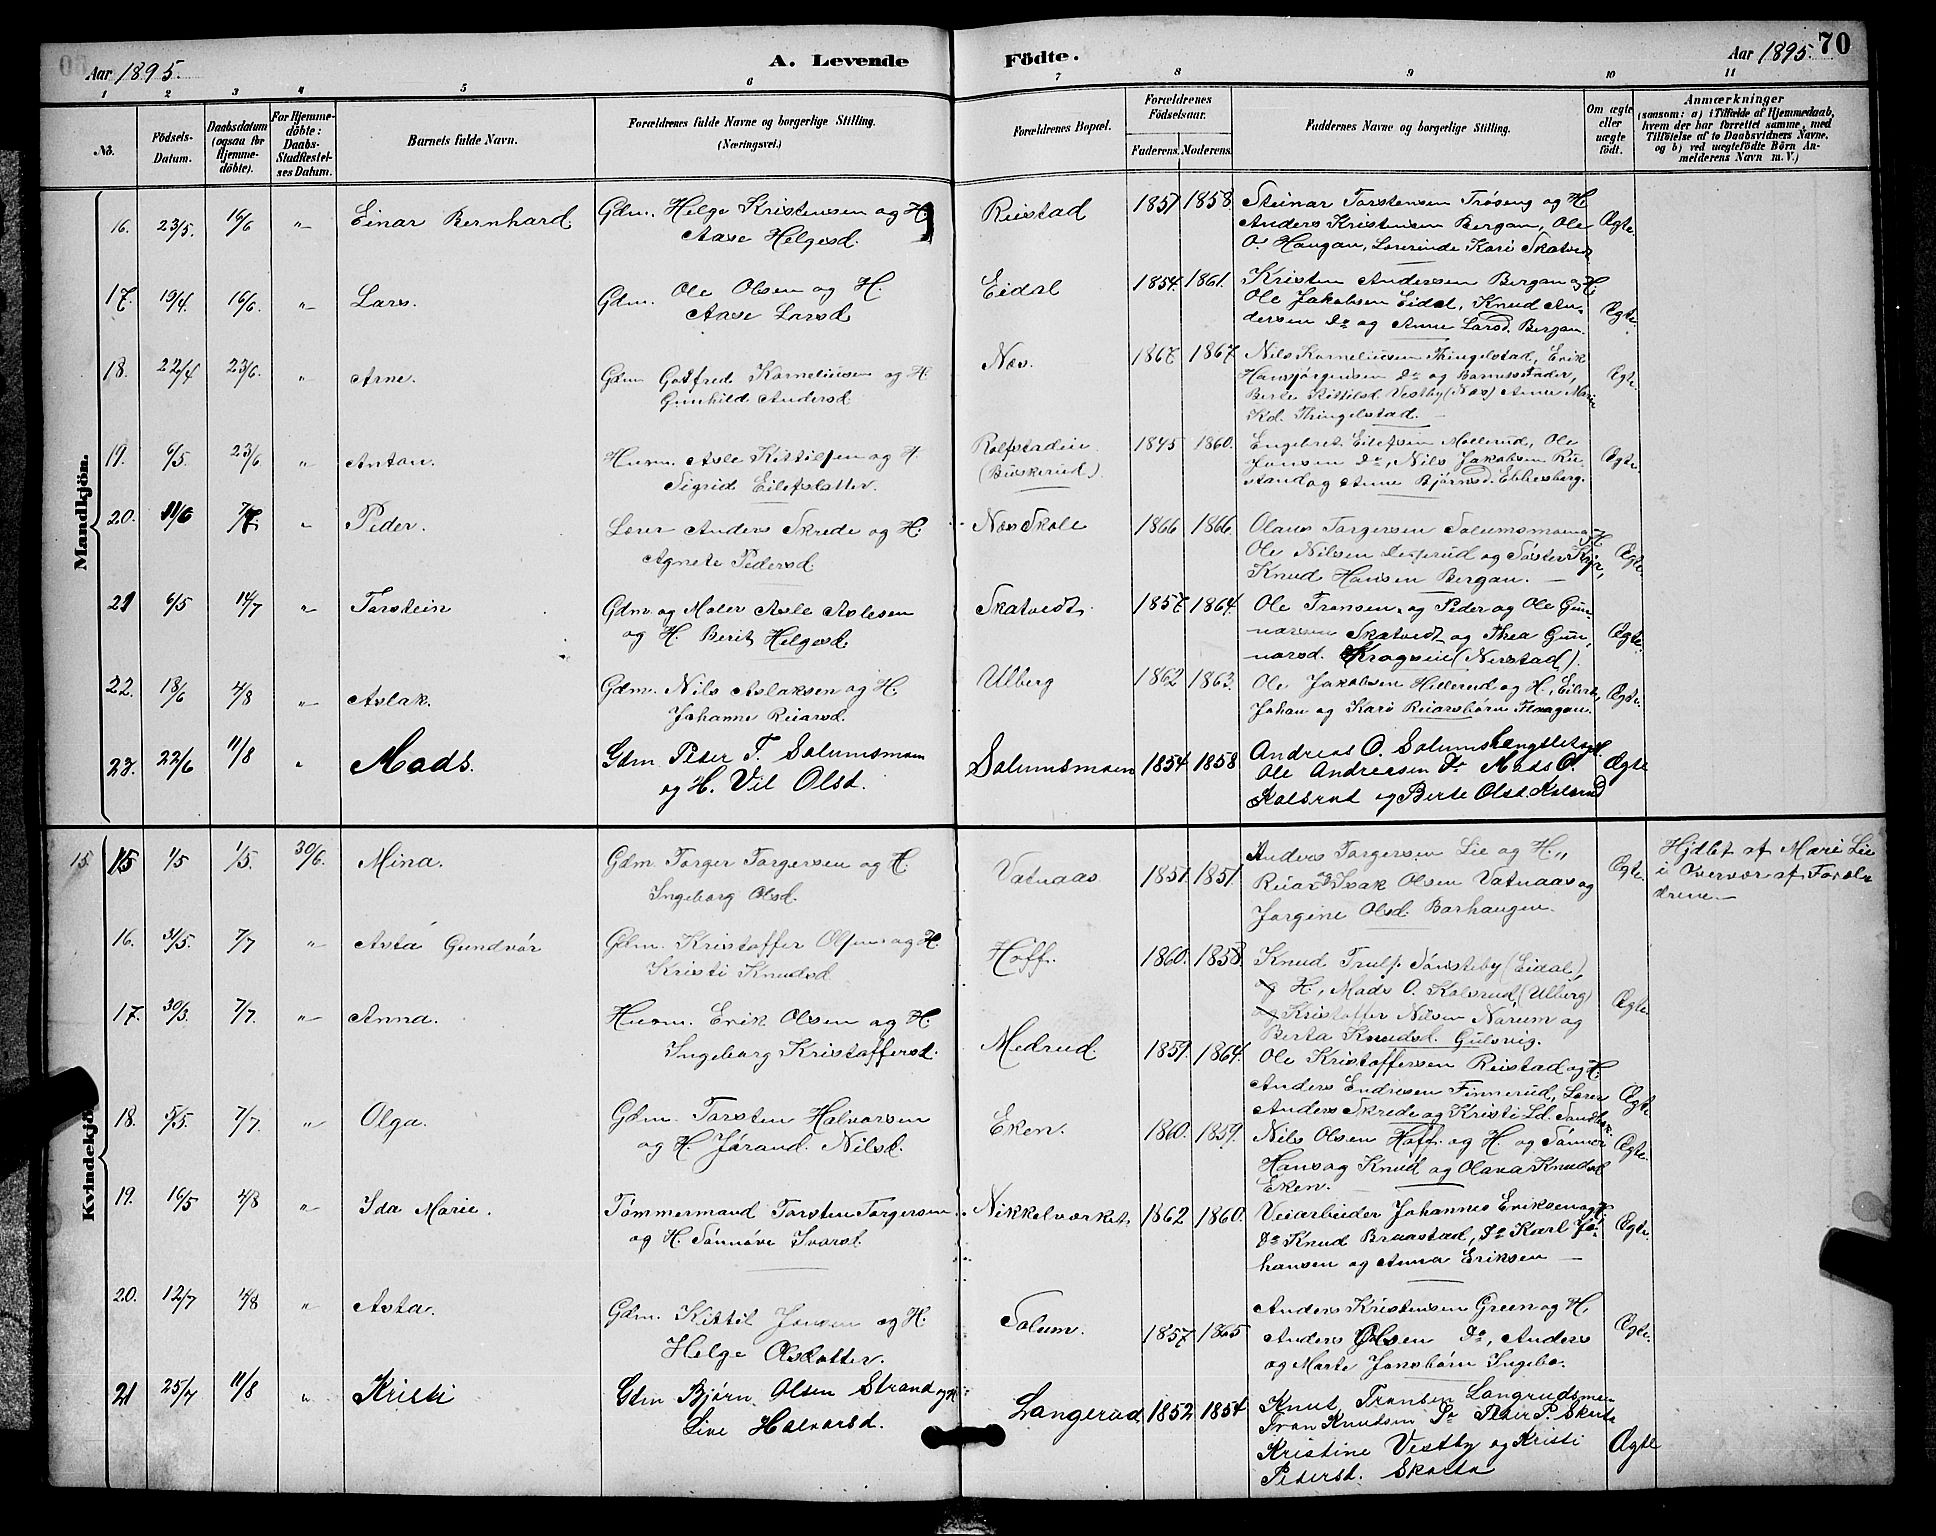 Aar 1895. A. Levende Födte. Aar 1895. 70
1 2 3 4 5 6 7 8 9 10 11
No.
Födsels-Datum.
Daabsdatum (ogsaa for Hjemme-döbte).
For Hjemme-döbte: Daabs-Stadfæstel-ses Datum.
Barnets fulde Navn.
Forældrenes fulde Navne og borgerlige Stilling.
(Næringsvei.)
Forældrenes Bopæl.
Forældrenes Födselsaar.
Faderens. Moderens.
Faddernes Navne og borgerlige Stilling.
Om ægte eller uægte födt.
Anmærkninger
(saasom: a) i Tilfælde af Hjemmedaab,
hvem der har forrettet samme, med
Tilföielse af to Daabsvidners Navne.
og b) ved uægtefödte Börn An-
melderens Navn m. V.)
Mandkjön.
16. 23/5. 16/6 " Einar Bernhard. Gdm. Helge Kristensen og H. Aase Helgesd. Reistad 1857 1858. Steinar Torstensen Trøseng og H.
Anders Kristensen Bergan, Ole
O. Haugan, Lærerinde Kari Skatvedt Ægte.
17. 19/4. 16/6. " Lars. Gdm. Ole Olsen og H. Aase Larsd Eidal 1854. 1861. Kristen Andersen Bergan og H.
Ole Jakobsen Eidal, Knud An-
dersen Do og Anne Larsd. Bergan. Ægte.
18. 22/4 23/6. " Arne. Gdm Gotfred Korneliusen og H. Gunhild Andersd Næs. 1867 1867. Nils Korneliusen Thingelstad, Erik
Hansjørgensen Do og Barnets Fader,
Berte Kittilsd. Vestby (Næs) Anne Marie
Kd. Thingelstad. Ægte.
19. 6/5. 23/6 " Anton. Husm. Asle Kittilsen og H Sigrid Eilefsdatter. Rolfstadeie (Buskerud) 1845 1860. Engebret Eilefsen Møllerud, Ole
Jonsen Do, Nils Jakobsen Ru-
stand og Anne Bjørnsd. Ebbesberg. Ægte.
20. 11/6 7/7 " Peder. Lærer Anders Skrede og H. Agnete Pedersd. Næs Skole 1866 1866. Olaus Torgersen Solumsmoen og H
Ole Nilsen og Søster Kaja,
Knud Hansen Bergan. Ægte.
21 6/5 14/7 " Torstein Gdm. og Maler Asle Aslesen og H. Berit Helgesd. Skatvedt. 1857 1864. Ole Tronsen og Peder og Ole Gun-
narsen Skatvedt og Thea Gun-
narsd. Kragseie (Nerstad). Ægte.
22. 18/6 4/8 " Aslak. Gdm. Nils Aslaksen og H. Johanne Reiarsd. Ulberg 1862 1863. Ole Jakobsen Hillerud og H, Eilert,
Johan og Kari Reiarsbørn Flaagan. Ægte.
23. 22/6 11/8 " Mads. Gdm Peder T. Solumsmoen og H. Vil Olsd. Solumsmoen 1854 1858 Andreas O. Solumshengslet og H.
Ole Andreasen Do Mads O.
Kolsrud og Berte Olsd. Kolsrud Ægte
Kvindekjön.
15 15 1/5 1/5. 30/6. Mina. Gdm. Torger Torgersen og H. Ingeborg Olsd. Vatnaas 1857. 1851. Anders Torgersen Lie og H.,
Reiar og Isak Olsen Vatnaas og
Jorgine Olsd. Borhaugen. Ægte. Hjdbt af Mari Lie
i Overvær af Foræl-
drene.
16. 31/5. 7/7 " Asta Gundvór Gdm. Kristoffer Olsen og H. Kristi Knudsd. Hoff. 1860. 1858. Knud Trulss. Sønsteby (Eidal),
og H., Mads O. Kolsrud (Ulberg)
og Kristoffer Nilsen Narum og
Berta Knudsd. Gulsvig. Ægte.
17. 30/3. 7/7. " Anna. Husm. Erik Olsen og H. Ingeborg Kristoffersd. Medrud 1859. 1864. Ole Kristoffersen Reistad og H.
Anders Endresen Finnerud, Lærer
Anders Skrede og Kristi Ld. Ægte
18. 5/5. 7/7. " Olga. Gdm. Torsten Halvorsen og H. Jørand Nilsd. Eken. 1860. 1859. Nils Olsen Hoff. og H. og Sønner
Hans og Knud og Olava Knudsd
Eken. Ægte.
19. 16/5 4/8 " Ida Marie. Tømmermand Torsten Torgersen og H. Sønnøve Ivarsd. Nikkelværket. 1862 1860. Veiarbeider Johannes Eriksen og H.
Do Knud Braastad, Do Karl Jo-
hansen og Anna Eriksen Ægte.
20. 12/7 4/8 " Asta. Gdm. Kittil Jonsen og H. Helge Olsdatter. Solum. 1857. 1865 Anders Kristensen Green og H.
Anders Olsen Do, Anders
og Marte Jonsbørn Ingebo. Ægte.
21 25/7 11/8 " Kristi Gdm Bjørn Olsen Strand og H Live Halvorsd. Langerud 1852. 1854 Knut Tronsen Langrudsmoen
Tron Knudsen Do Peder P. Skarta
Kristine Vestby og Kristi
Pedersd. Skarta Ægte